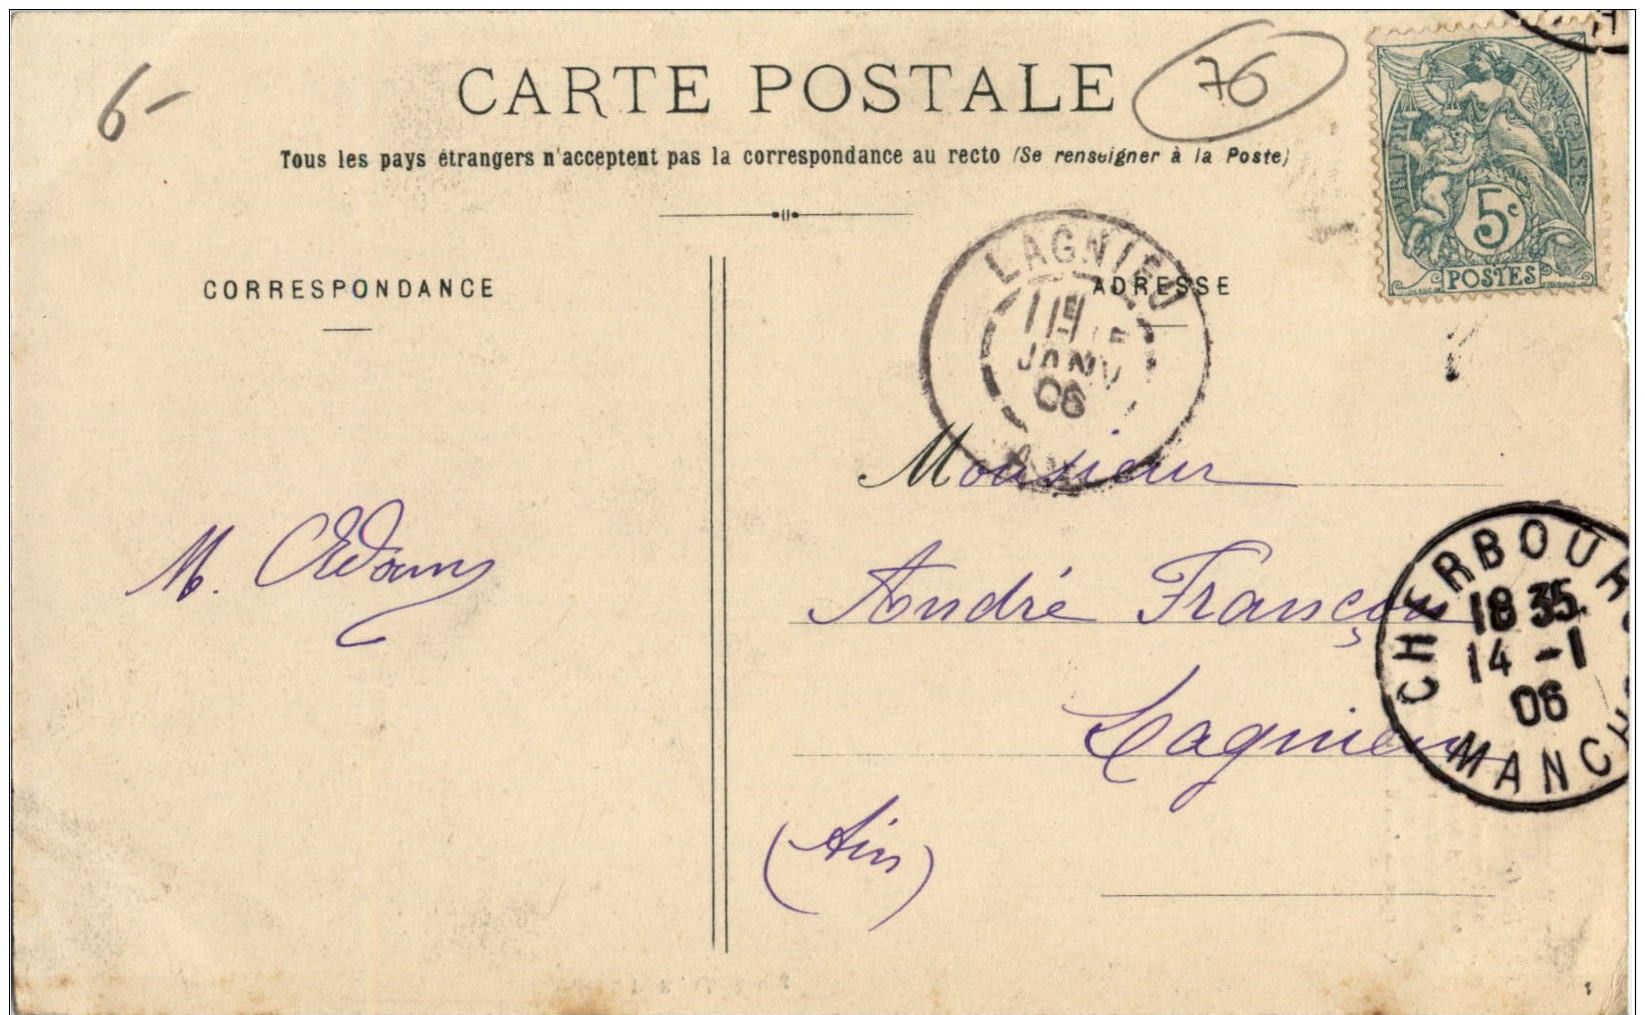 6-
CARTE POSTALE
76
Tous les pays étrangers n'acceptent pas la correspondance au recto (Se renseigner à la Poste)
RÉPUBLIQUE FRANÇAISE
5c
POSTES
CORRESPONDANCE
ADRESSE
LAGNIEU
JANV
06
Monsieur
André François
Lagnieu
(Ain)
M.
CHERBOURG
18 35
14 -1
06
MANCHE